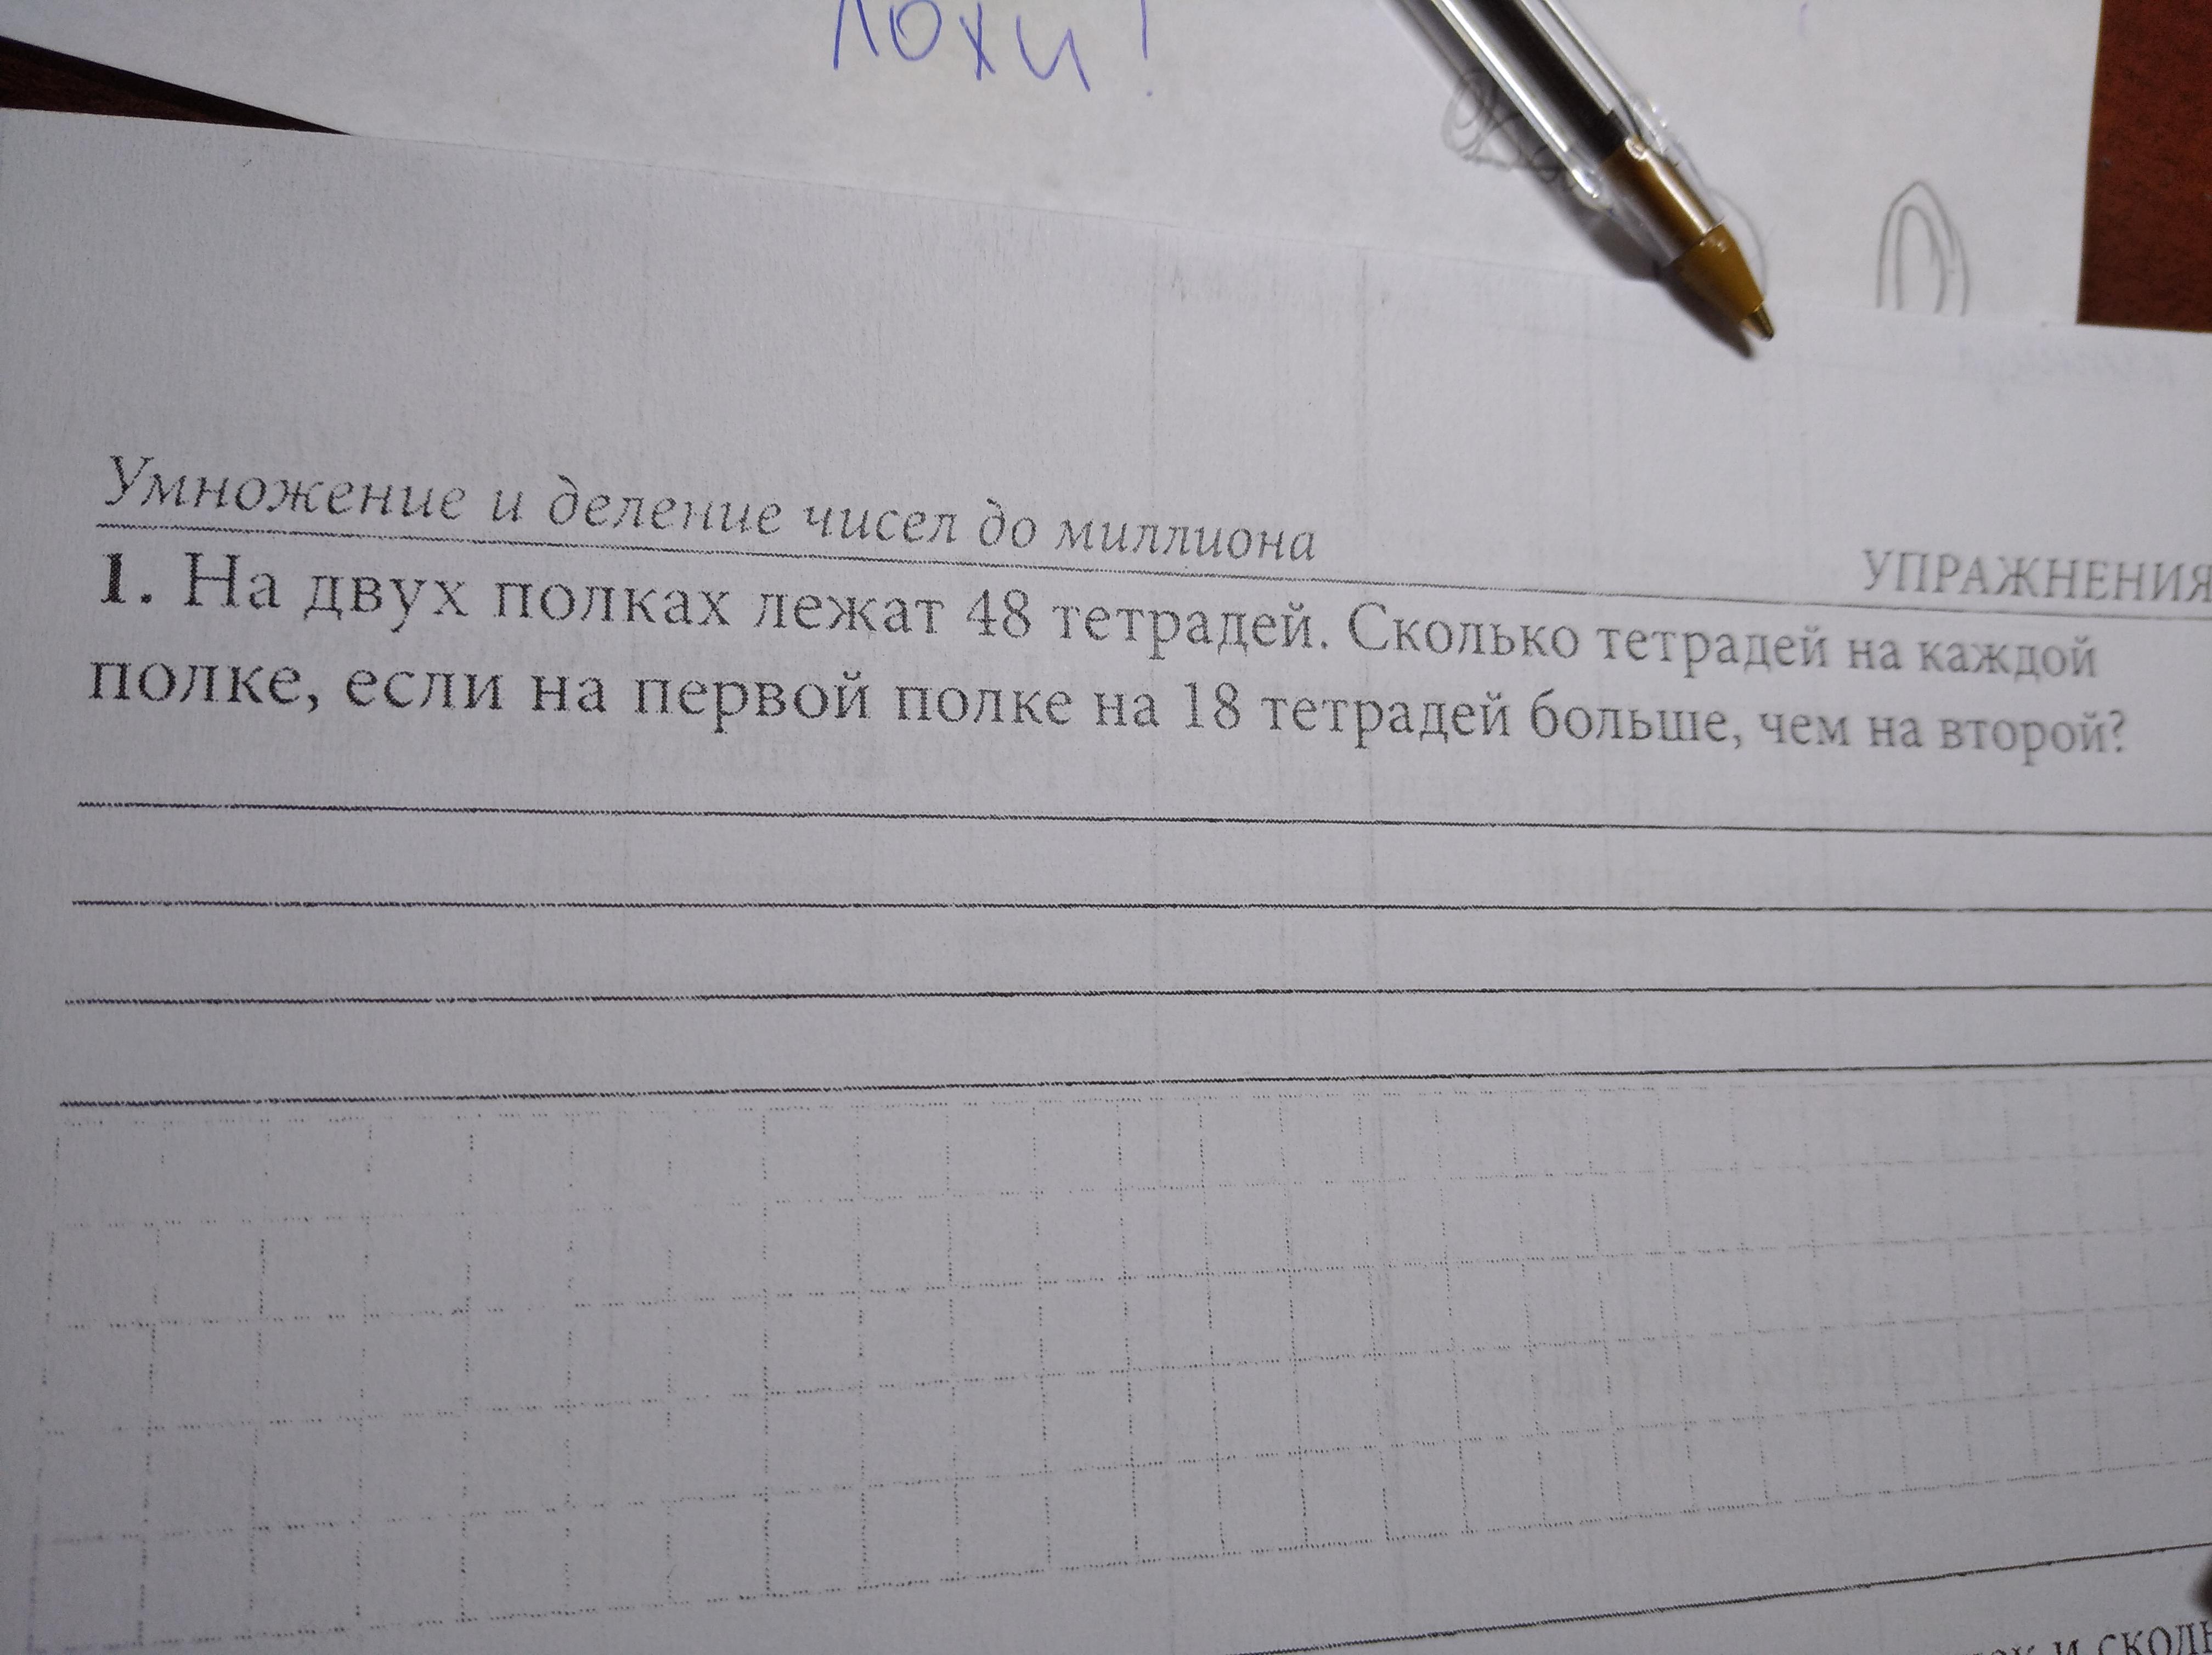 лохи!
Умножение и деление чисел до миллиона
УПРАЖНЕНИЯ
1. На двух полках лежат 48 тетрадей. Сколько тетрадей на каждой
полке, если на первой полке на 18 тетрадей больше, чем на второй?
и